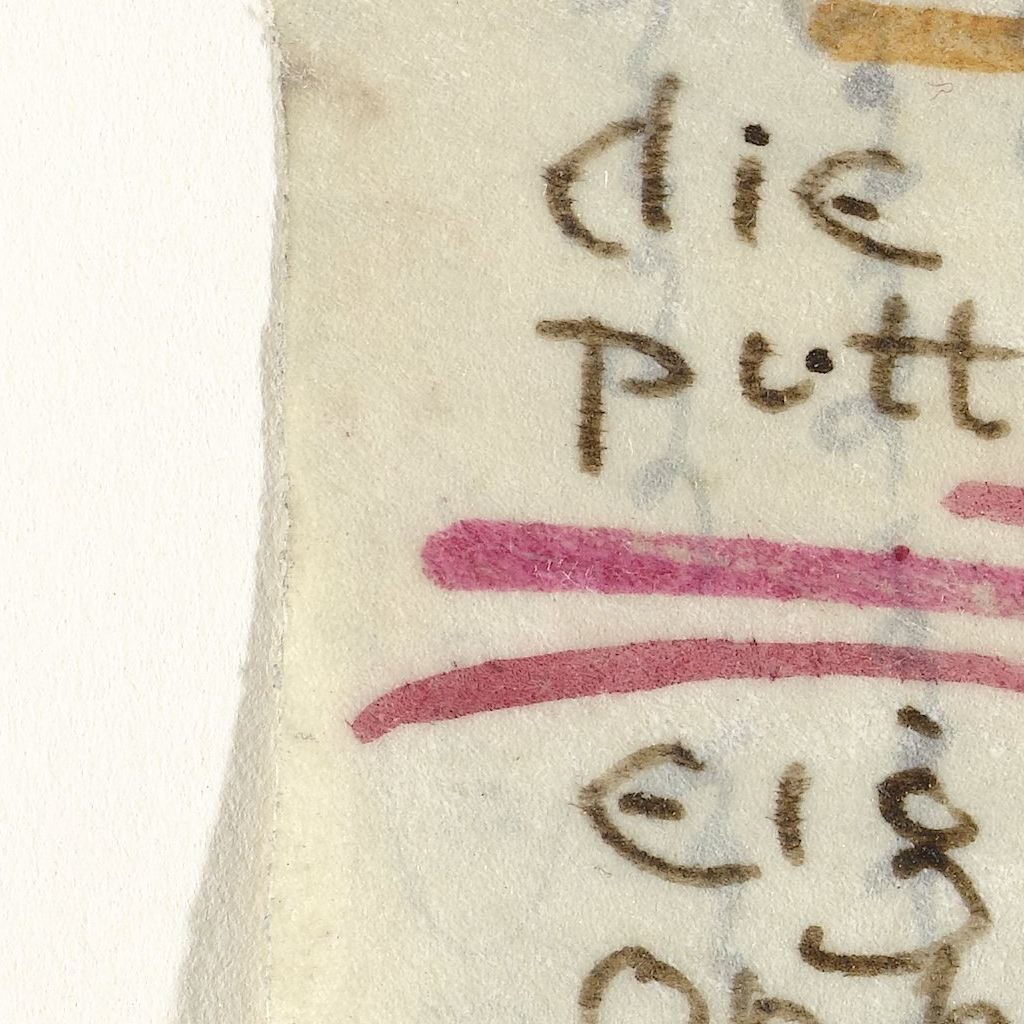 die
putt
eig